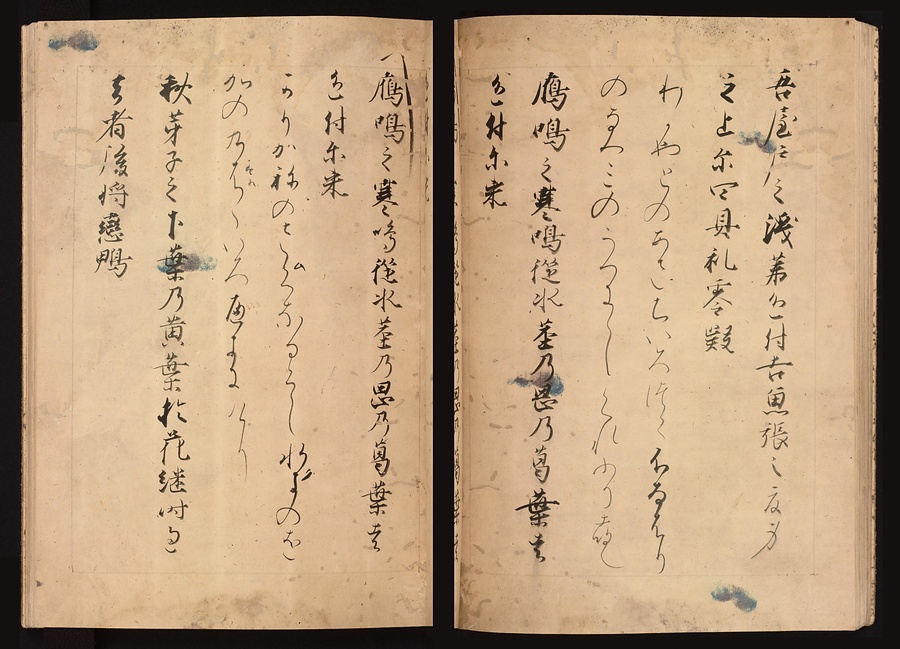 吾屋戸之浅茅色付吉魚張之夏身
之上尓四具礼零疑
わかやとのあさちいろつくよなはり
のなつみのうへにしくれふるらし
鴈鳴之寒鳴従水茎乃岡乃葛葉者
色付尓来
鴈鳴之寒鳴従水茎乃岡乃葛葉者
色付尓来
かりかねのさむくなるよりみつくきのを
かのくすはゝいろつきにけり
秋芽子之下葉乃黄葉於花継時過
去者後将戀鴨